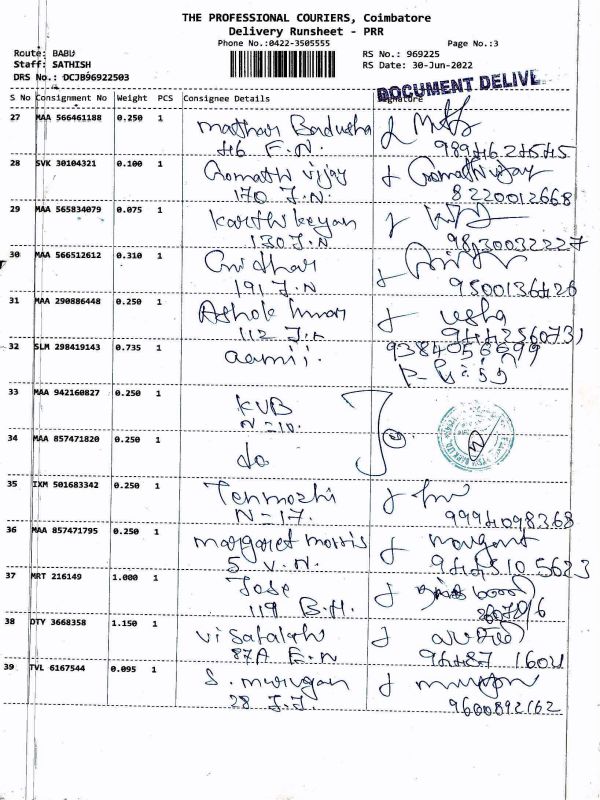 THE PROFESSIONAL COURIERS, Coimbatore
Delivery Runsheet - PRR
Phone No.:0422-3505555 Page No.:3
Route: BABU RS No.: 969225
Staff: SATHISH RS Date: 30-Jun-2022
DRS No.: DCJB96922503
DOCUMENT DELIVE
S No Consignment No Weight PCS Consignee Details Signature
27 MAA 566461188 0.250 1 Mathar Badusha
46 F.N.
28 SVK 30104321 0.100 1 Gomathi Vijay Gomathi Vijay
170 J.N 8220012668
29 MAA 565834079 0.075 1 Karthikeyan
130 J.N 9830032227
30 MAA 566512612 0.310 1 Giridhar
191 J.N 9500136426
31 MAA 290886448 0.250 1 Ashok kumar usha
112 J.N 9442560731
32 SLM 298419143 0.735 1 aamii. 9384056699
33 MAA 942160827 0.250 1 KVB
N=10.
34 MAA 857471820 0.250 1 do
35 IXM 501683342 0.250 1 Tenmozhi
N=17. 9994098368
36 MAA 857471795 0.250 1 margaret morris margaret
5 V.N. 9445105623
37 MRT 216149 1.000 1 Jose
119 B.H.
38 DTY 3668358 1.150 1 Visalakshi
87A E.N 94487 1601
39 TVL 6167544 0.095 1 S. murugan murugan
28 J.J. 9600892162